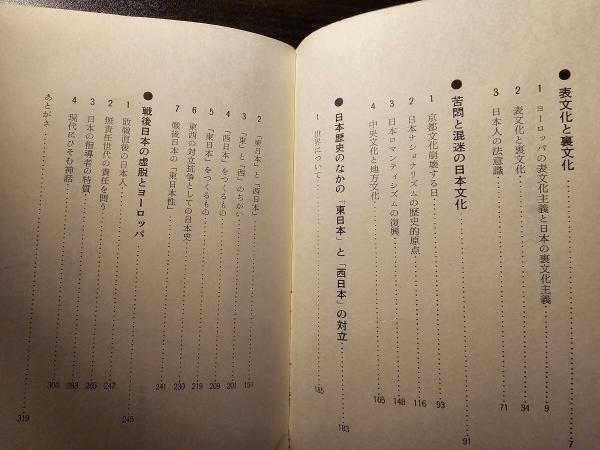 ●表文化と裏文化……7
1 ヨーロッパの表文化主義と日本の裏文化主義……9
2 表文化と裏文化……34
3 日本人の法意識……71
●苦悶と混迷の日本文化……91
1 京都文化崩壊する日……93
2 日本ナショナリズムの歴史的原点……116
3 日本ロマンティシズムの復興……148
4 中央文化と地方文化……165
●日本歴史のなかの「東日本」と「西日本」の対立……183
1 世界について……185
2 「東日本」と「西日本」……191
3 「東」と「西」のちがい……201
4 「西日本」をつくるもの……209
5 「東日本」をつくるもの……219
6 東西の対立抗争としての日本史……230
7 戦後日本の「東日本性」……241
●戦後日本の虚脱とヨーロッパ……245
1 敗戦直後の日本人……247
2 無責任世代の責任を問う……265
3 日本の指導者の特質……283
4 現代にひそむ神話……300
あとがき……319